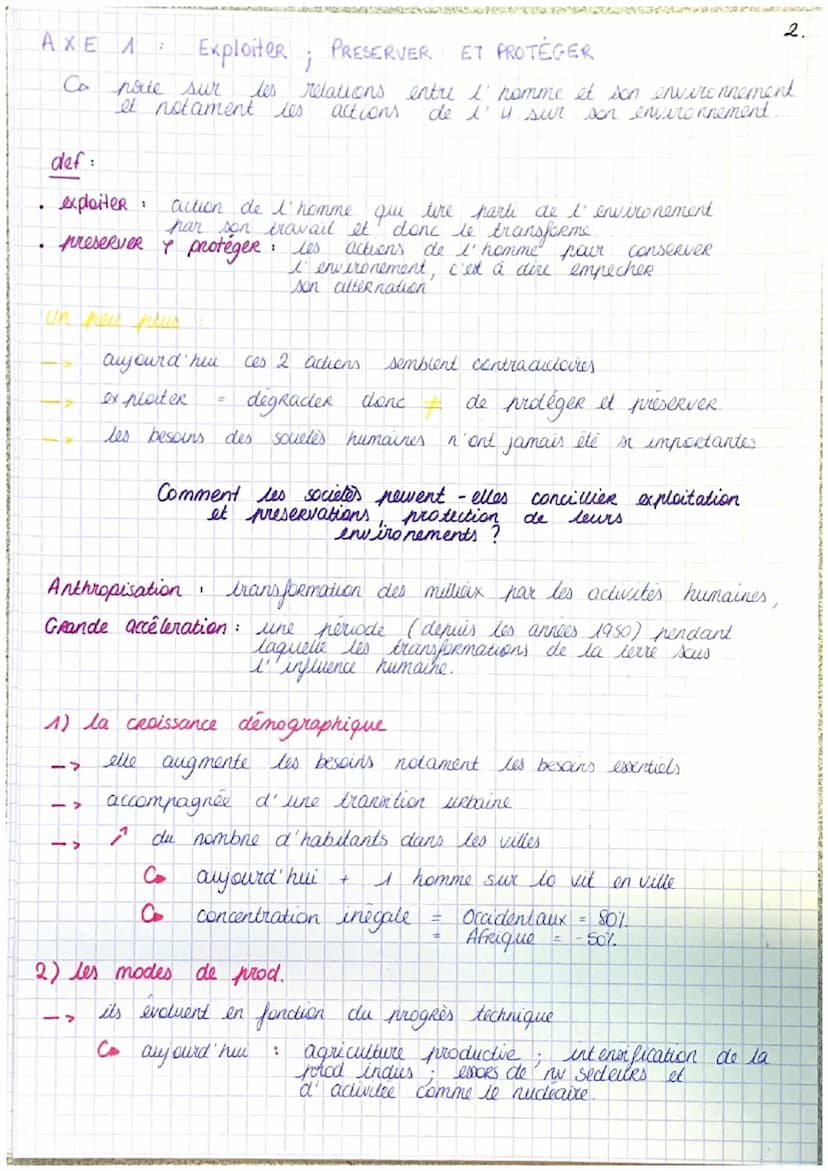 2.
AXE 1 : Exploiter ; PRESERVER ET PROTÉGER
porte sur les relations entre l'homme et son environnement
et notament les actions de l'H sur son environnement.
def :
• exploiter : action de l'homme qui tire parti de l'environement
par son travail et donc le transforme.
• preserver & protéger : les actions de l'homme pour conserver
l'environement, c'est à dire empecher
son alternation
un peu plus :
--> aujourd'hui ces 2 actions semblent contradictoires
--> exploiter = dégrader donc ≠ de protéger et préserver
--> les besoins des sociétés humaines n'ont jamais été si importantes
Comment les sociétés peuvent-elles concillier exploitation
et preservations, protection de leurs
environements ?
Anthropisation : transformation des millieux par les activités humaines,
Grande accéleration : une période (depuis les années 1950) pendant
laquelle les transformations de la terre sous
l'influence humaine.
1) la croissance démographique
--> elle augmente les besoins notament les besoins essentiels
--> accompagnée d'une transition urbaine
--> ↗ du nombre d'habitants dans les villes
aujourd'hui + 1 homme sur 10 vit en ville
concentration inégale = Occidentaux = 80%
= Afrique = -50%
2) les modes de prod.
--> ils évoluent en fonction du progrès technique
aujourd'hui : agriculture productive ; intensification de la
prod indus ; essors de nv secteurs et
d'activitée comme le nucléaire.